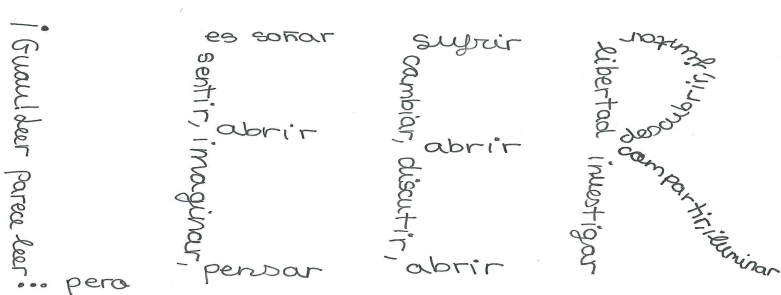 ¡Guau! Leer parece leer...
pero
es soñar
sentir, imaginar,
abrir
pensar
sufrir
cambiar, discutir,
abrir
abrir
libertad investigar
descubrir,
compartir, iluminar